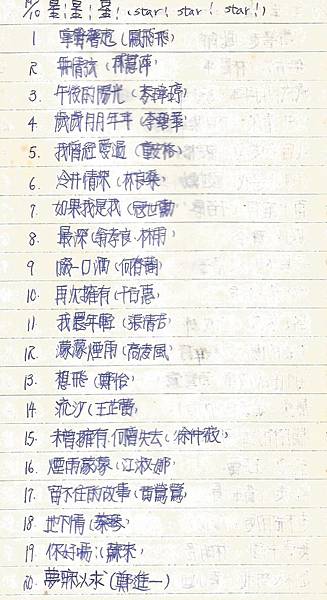 10 星!星!星!(star! star! star!)
1 寧靜港邊(鳳飛飛)
2. 無情衣(林慧萍)
3. 午後的陽光(李碧婷)
4. 歲歲月月年年(李碧華)
5. 我曾經愛過(黃格)
6. 冷井情深(林良樂)
7. 如果我是我(寇世勳)
8. 最深(翁孝良.林用)
9 啜一口酒(何春蘭)
10. 再次擁有(千百惠)
11 我最年輕(張清芳)
12. 濛濛煙雨(高凌風)
13. 想飛(鄭怡)
14. 流沙(王芷蕾)
15. 未曾擁有.何曾失去(徐仲薇)
16. 煙雨濛濛(江淑娜)
17. 留不住的故事(黃鶯鶯)
18. 地下情(蔡琴)
19. 你好嗎(蘇來)
20. 夢寐以來(鄭進一)